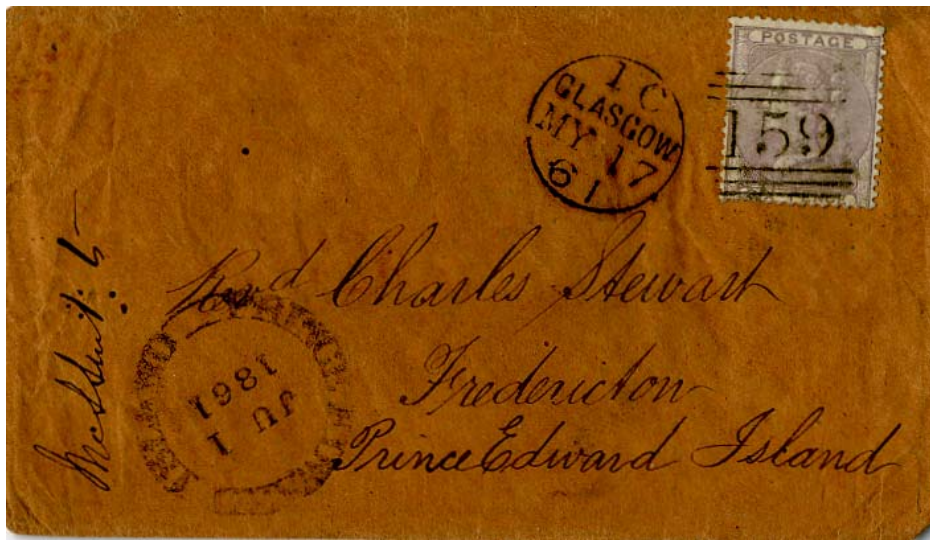 POSTAGE
159
1 C
GLASGOW
MY 17
61
Revd Charles Stewart
Fredericton
Prince Edward Island
JU 1
1861